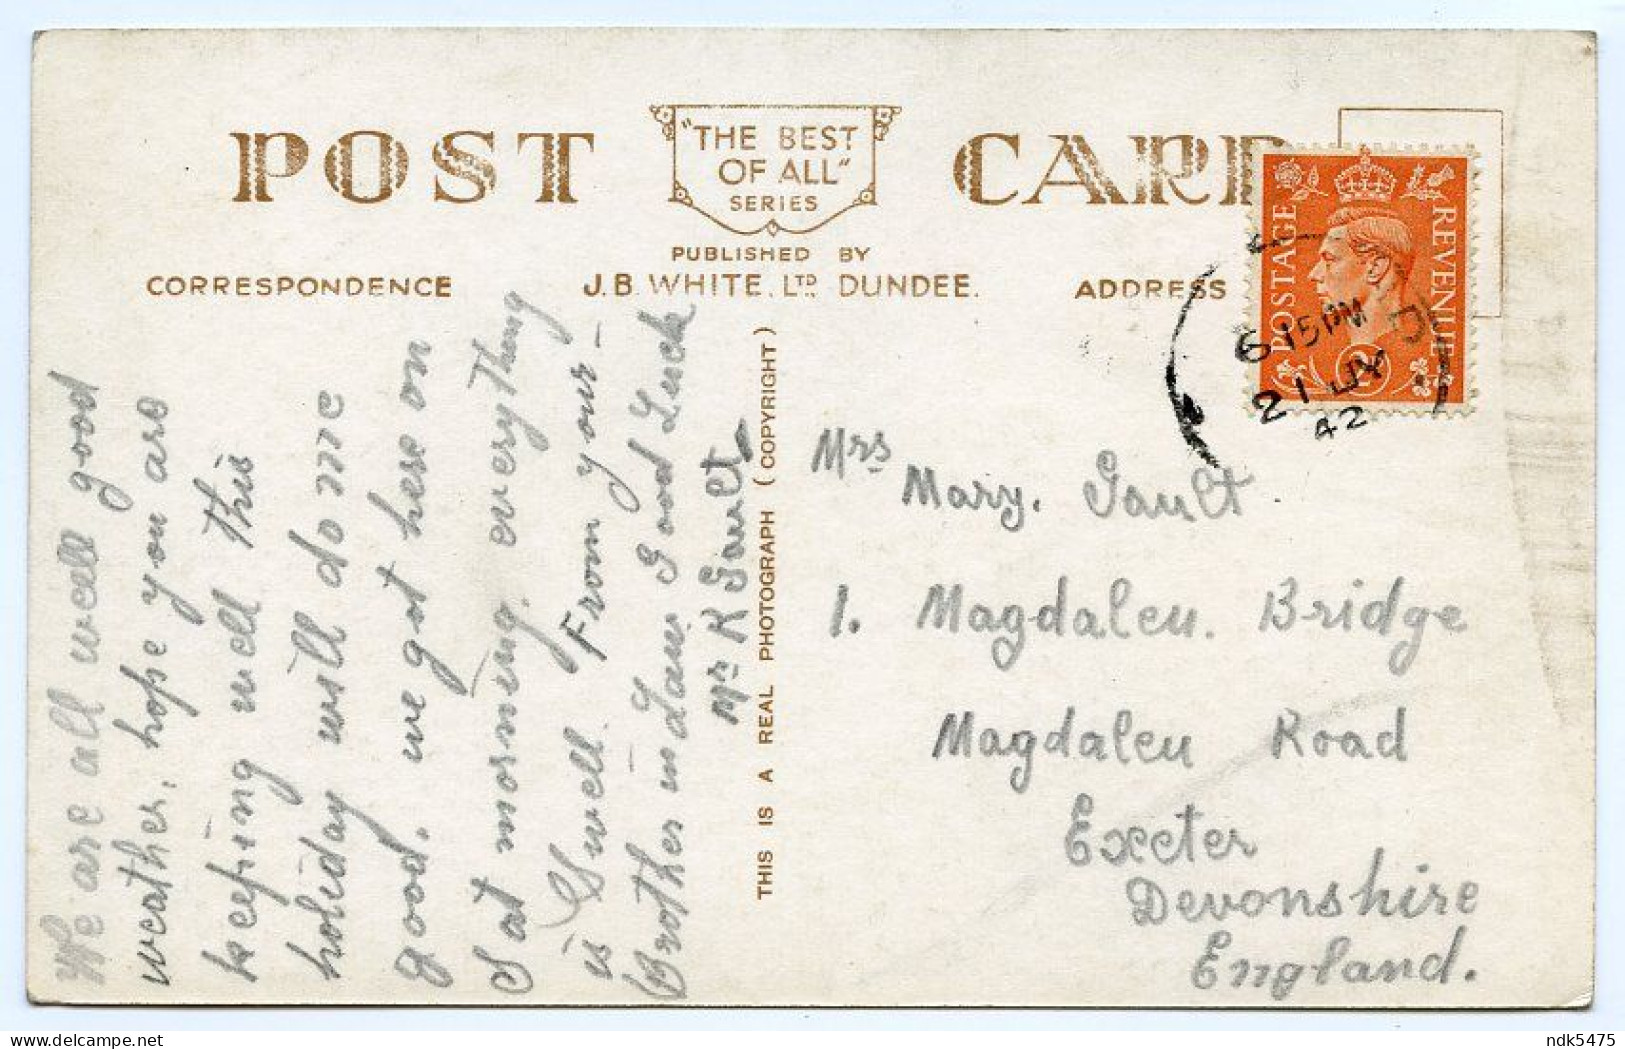 POST CARD
"THE BEST
OF ALL"
SERIES
PUBLISHED BY
J.B. WHITE, LTD. DUNDEE.
CORRESPONDENCE
ADDRESS
POSTAGE
REVENUE
2
6 15 PM
21 JY
42
We are all well good
weather, hope you are
keeping well this
holiday will do me
good, we got here on
Sat morning. everything
is Swell. From your -
Brother in Law Good Luck
Mr R Gault
THIS IS A REAL PHOTOGRAPH (COPYRIGHT)
Mrs
Mary. Gault
1. Magdalen. Bridge
Magdalen Road
Exeter
Devonshire
England.
ndk5475